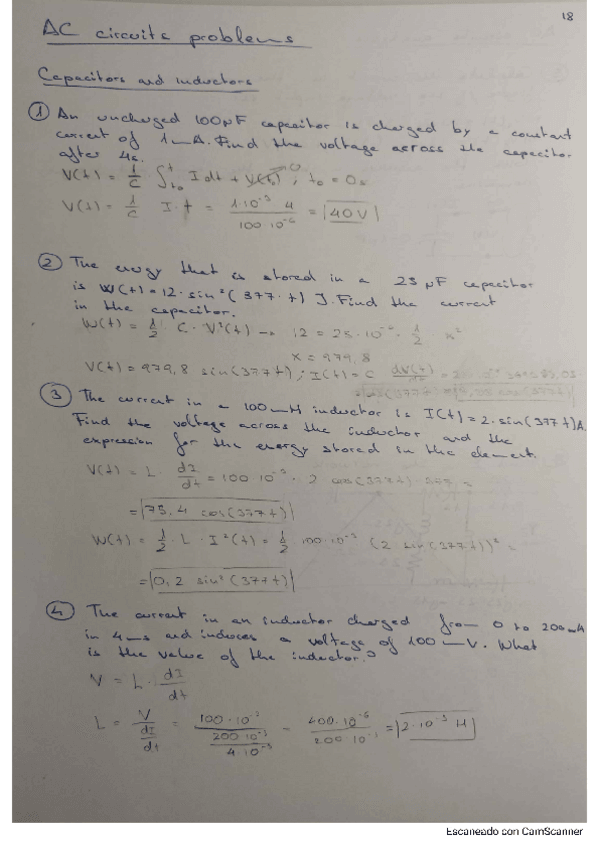 18
AC circuits problems
Capacitors and inductors
① An uncharged 100μF capacitor is charged by a constant
current of 1mA. Find the voltage across the capacitor
after 4s.
V(t) = 1/C ∫ₜ₀ᵗ I dt + V(t₀)→0 ; t₀ = 0s
V(t) = 1/C I · t = 1·10⁻³ 4 / 100·10⁻⁶ = |40V|
② The energy that is stored in a 25 μF capacitor
is W(t) = 12 · sin²(377 · t) J. Find the current
in the capacitor.
W(t) = 1/2 · C · V²(t) → 12 = 25·10⁻⁶ · 1/2 · x²
x = 979,8
V(t) = 979,8 sin(377t) ; I(t) = C dV(t)/dt =
③ The current in a 100mH inductor is I(t) = 2·sin(377t)A.
Find the voltage across the inductor and the
expression for the energy stored in the element.
V(t) = L · dI/dt = 100·10⁻³ · 2 cos(377t) · 377 =
= |75,4 cos(377t)|
W(t) = 1/2 · L · I²(t) = 1/2 · 100·10⁻³ (2 sin(377t))² =
= |0,2 sin²(377t)|
④ The current in an inductor charged from 0 to 200mA
in 4ms and induces a voltage of 100mV. What
is the value of the inductor?
V = L · dI/dt
L = V / dI/dt = 100·10⁻³ / 200·10⁻³ / 4·10⁻³ = 400·10⁻⁶ / 200·10⁻³ = |2·10⁻³ H|
Escaneado con CamScanner